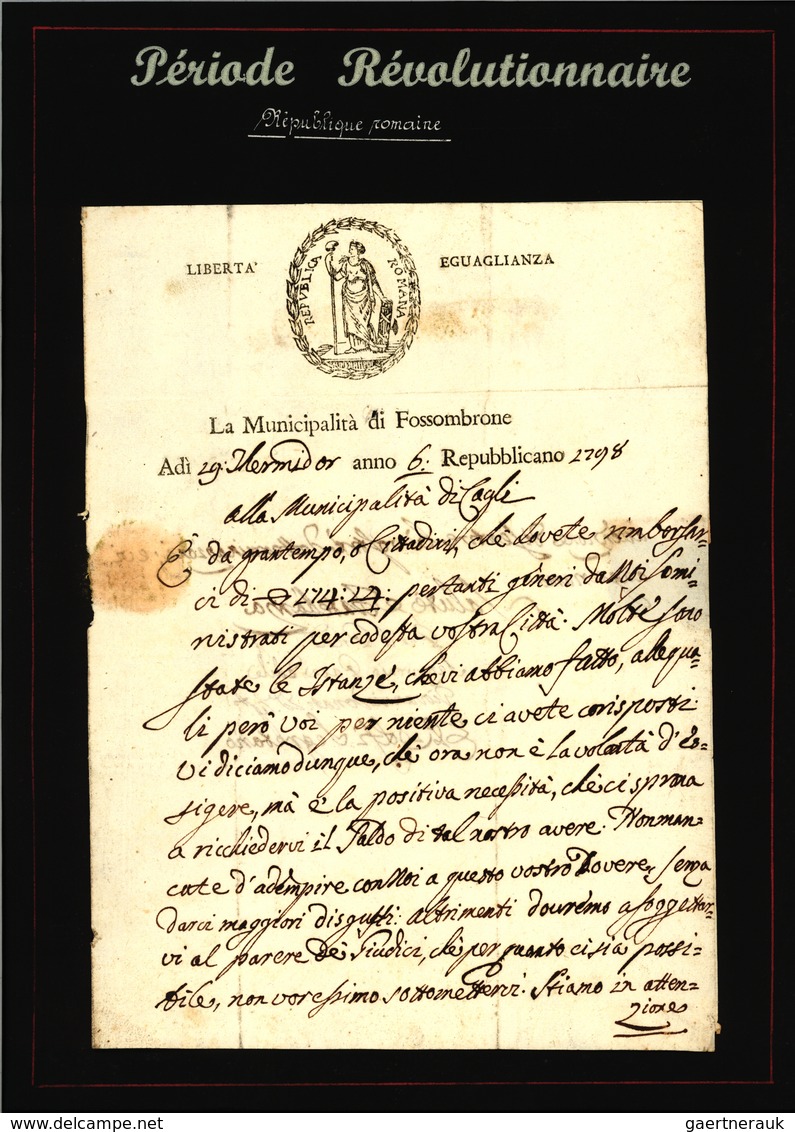 Période Révolutionnaire
République romaine
LIBERTA' EGUAGLIANZA
REPVBLICA ROMANA
La Municipalità di Fossombrone
Adì 29. Termidor anno 6. Repubblicano 1798
Alla Municipalità di Cagli
È da gran tempo, o Cittadini, che dovete rimborsar=
ci di 174:14: per tanti generi da Noi somi=
nistrati per codesta vostra Città. Molte sono
state le Istanze, che vi abbiamo fatto, alle qua=
li però voi per niente ci avete corisposti.
Vi diciamo dunque, che ora non è la volontà d'es=
sigere, mà è la positiva necessità, che ci sprona
a ricchiedervi il saldo di tal nostro avere. Non man=
cate d'adempire con Noi a questo vostro Dovere, senza
darci maggiori disgusti: altrimenti douremo assoggettar=
vi al parere de Giudici, che per quanto ci sia possi=
bile, non voressimo sottomettervi. Stiamo in atten=
zione
delcampe.net
gaertnerauk